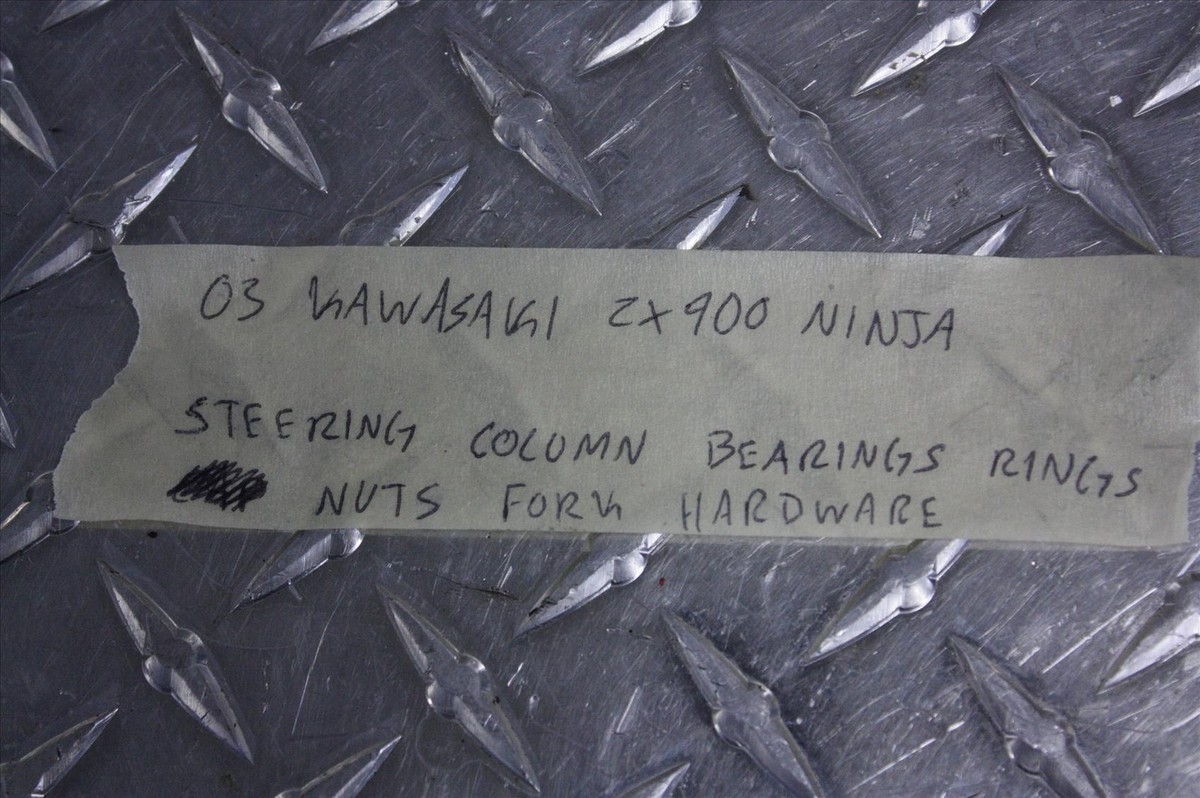 03 KAWASAKI ZX900 NINJA
STEERING COLUMN BEARINGS RINGS
NUTS FORK HARDWARE